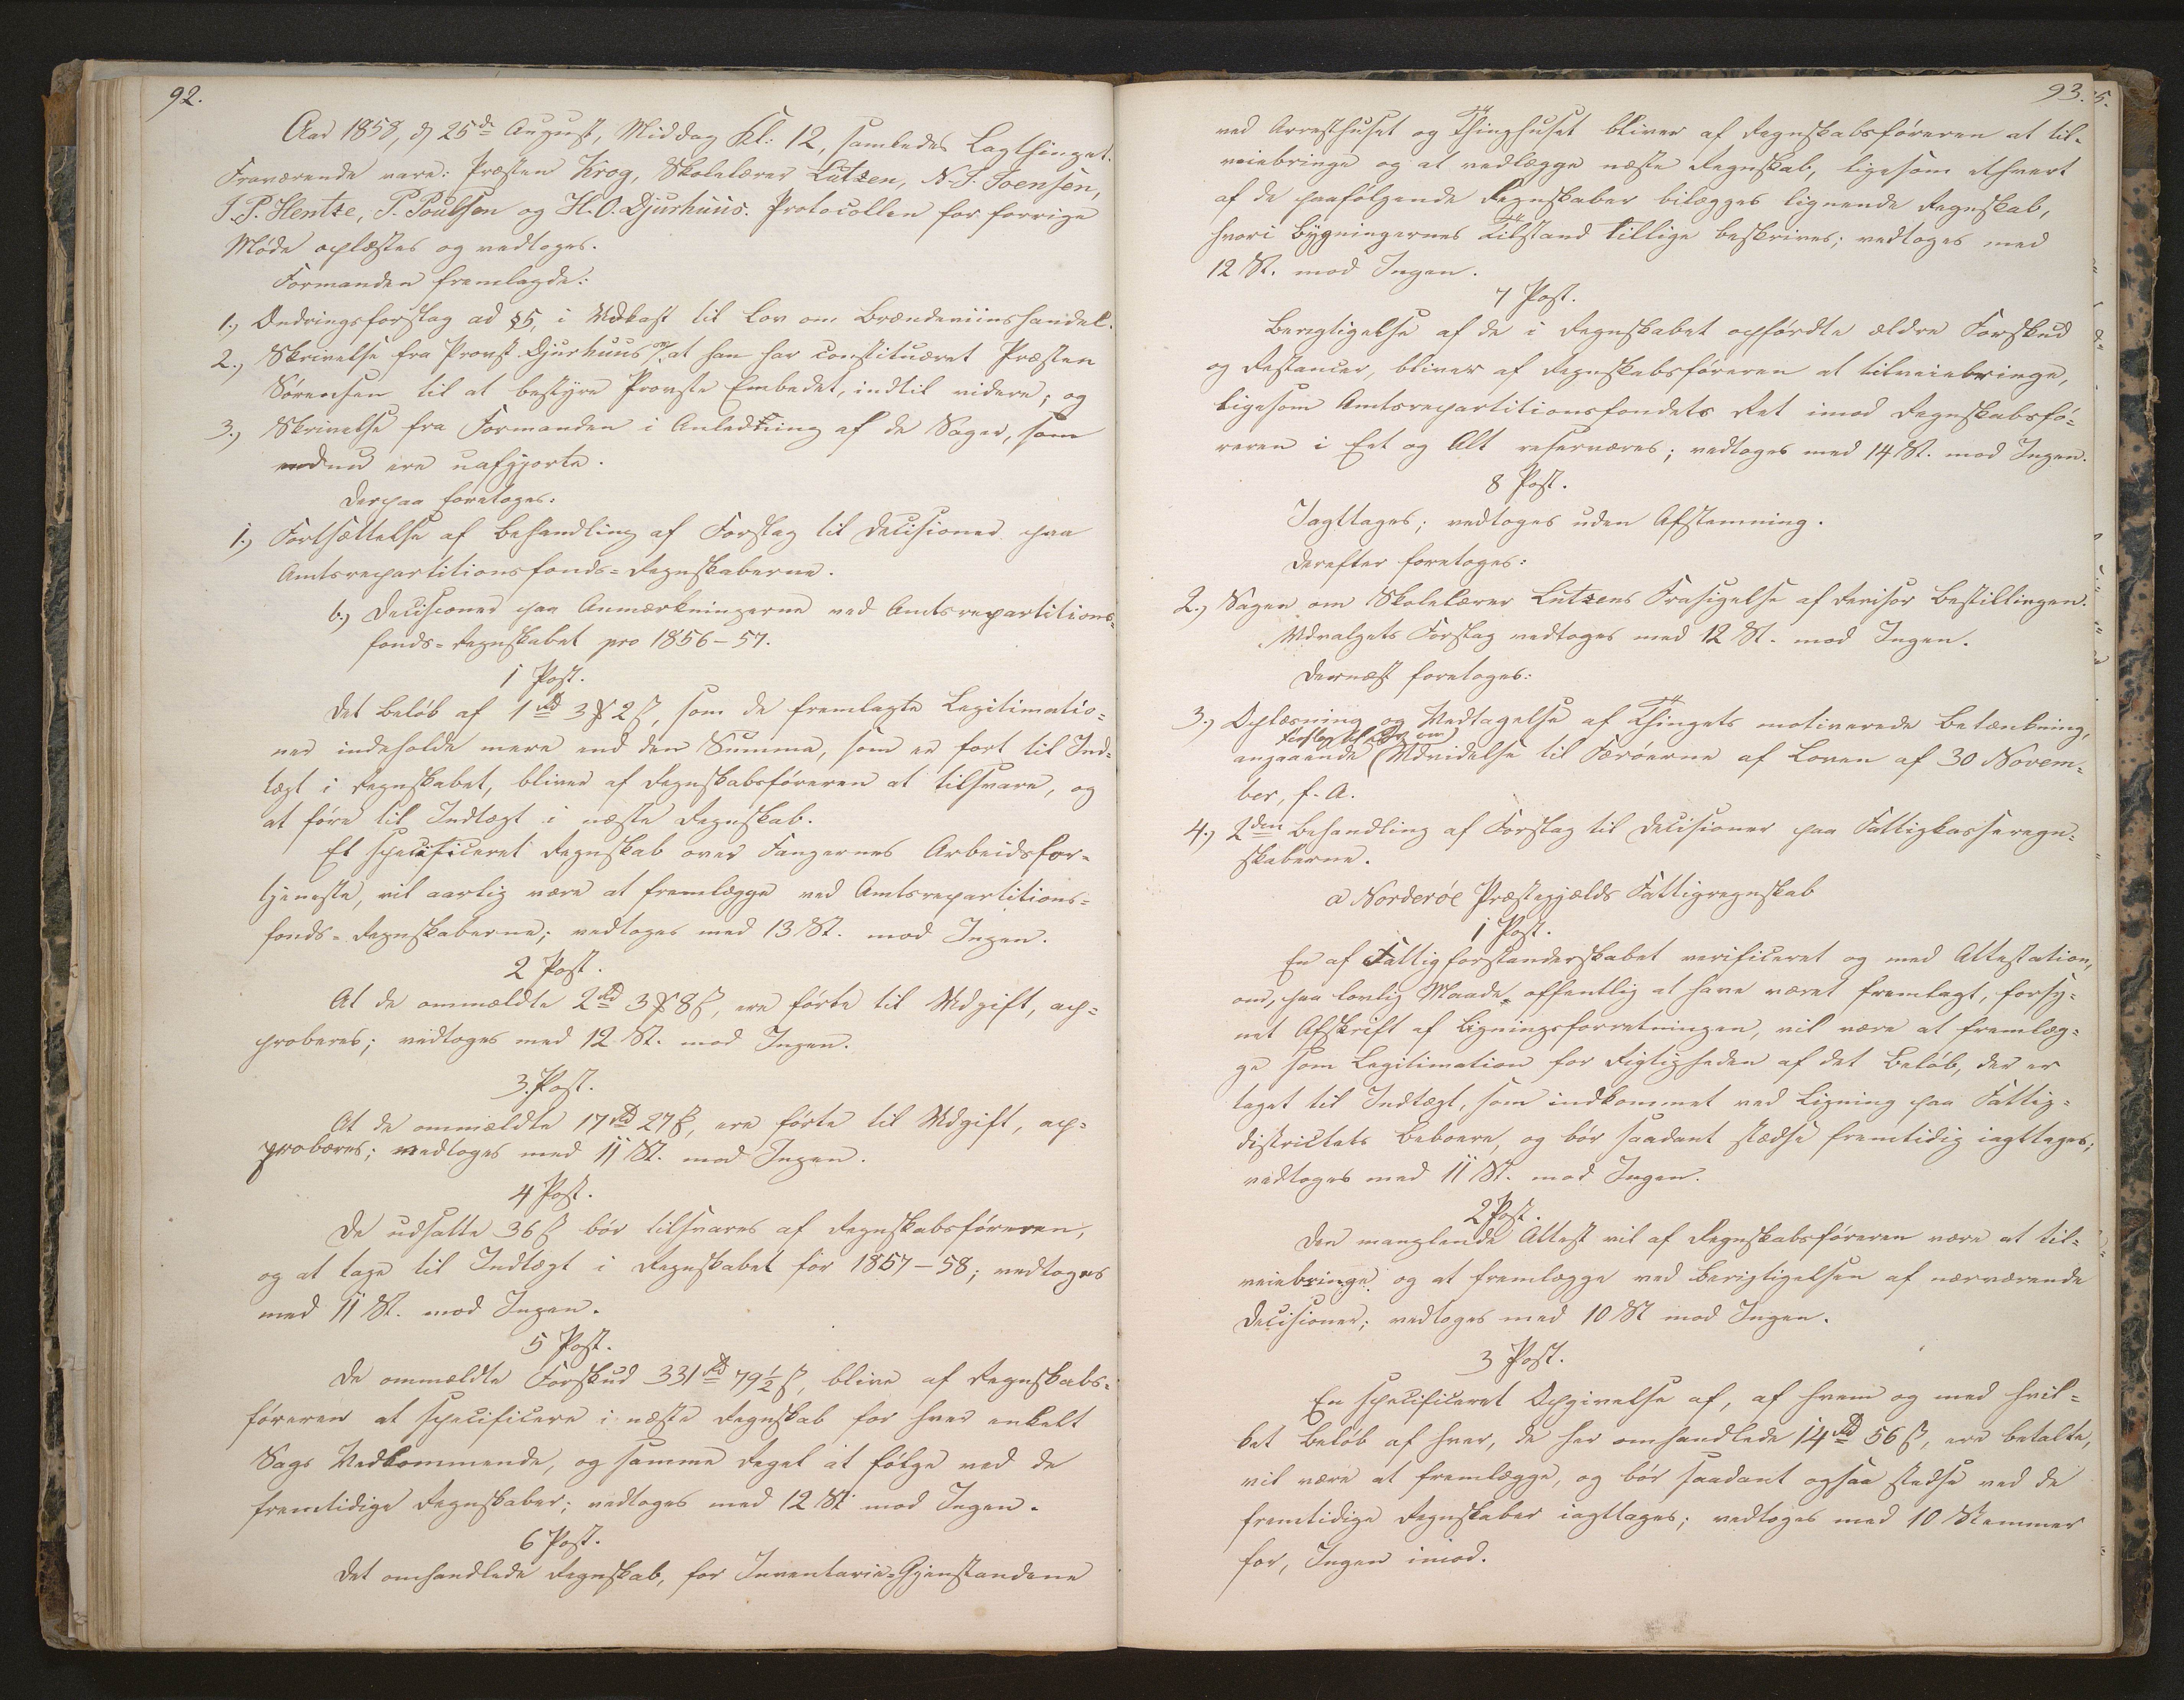 92.
Aar 1858, d. 25de August, Middag Kl: 12, samledes Lagthinget.
Fraværende vare: Præsten Krog, Skolelærer Lützen, N. J. Joensen,
J. P. Hentze, P. Poulsen og H. O. Djurhuus. Protocollen for forrige
Møde oplæstes og vedtoges.
Formanden fremlagde:
1.) Ændringsforslag ad §5, i Udkast til Lov om Brændeviinshandel.
2.) Skrivelse fra Provst Djurhuus om, at han har constitueret Præsten
Sørensen til at bestyre Provste Embedet, indtil videre, og
3.) Skrivelse fra Formanden i Anledning af de Sager, som
endnu ere uafgjorte.
Derpaa foretoges:
1.) Fortsættelse af Behandling af Forslag til Decisioner paa
Amtsrepartitionsfonds-Regnskaberne.
b.) Decisioner paa Anmærkningerne ved Amtsrepartitions-
fonds-Regnskabet pro 1856-57.
1 Post.
Det Beløb af 1 Rd 3 ꝳ 2 ß, som de fremlagte Legitimatio-
ner indeholde mere end den Summa, som er ført til Ind-
tægt i Regnskabet, bliver af Regnskabsføreren at tilsvare, og
at føre til Indtægt i næste Regnskab.
Et specificeret Regnskab over Fangernes Arbeidsfor-
tjeneste, vil aarlig være at fremlægge ved Amtsrepartitions-
fonds-Regnskaberne; vedtoges med 13 St. mod Ingen.
2 Post.
At de ommældte 2 Rd 3 ꝳ 8 ß, ere førte til Udgift, ap-
proberes; vedtoges med 12 St. mod Ingen.
3. Post.
At de ommældte 17 Rd 27 ß, ere førte til Udgift, ap-
proberes; vedtoges med 11 St. mod Ingen.
4 Post.
De udsatte 36 ß bør tilsvares af Regnskabsføreren,
og at tage til Indtægt i Regnskabet for 1857-58; vedtoges
med 11 St. mod Ingen.
5 Post.
De ommældte Forskud 331 Rd 79½ ß, blive af Regnskabs-
føreren at specificere i næste Regnskab for hver enkelt
Sags Vedkommende, og samme Regel at følge ved de
fremtidige Regnskaber; vedtoges med 12 St. mod Ingen.
6 Post.
Det omhandlede Regnskab, for Inventarie-Gjenstandene
93.
ved Arresthuset og Thinghuset bliver af Regnskabsføreren at til-
veiebringe og at vedlægge næste Regnskab, ligesom ethvert
af de paafølgende Regnskaber bilægges lignende Regnskab,
hvori Bygningernes Tilstand tillige beskrives; vedtoges med
12 St. mod Ingen.
7 Post.
Berigtigelse af de i Regnskabet opførdte ældre Forskud
og Restancer, bliver af Regnskabsføreren at tilveiebringe,
ligesom Amtsrepartitionsfondets Ret imod Regnskabsfø-
reren i Eet og Alt reserveres; vedtoges med 14 St. mod Ingen.
8 Post.
Iagttages; vedtoges uden Afstemning.
Derefter foretoges:
2.) Sagen om Skolelærer Lützens Frasigelse af Revisor Bestillingen.
Udvalgets Forslag vedtoges med 12 St. mod Ingen.
Dernæst foretoges:
3.) Oplæsning og Vedtagelse af Thingets motiverede Betænkning,
Forslag til Lov om
angaaende Udvidelse til Færøerne af Loven af 30 Novem-
ber, f. A.
4.) 2den Behandling af Forslag til Decisioner paa Fattigkasseregn-
skaberne.
a Norderøe Præstegjælds Fattigregnskab
1 Post.
En af Fattigforstanderskabet verificeret og med Attestation,
om, paa lovlig Maade, offentlig at have været fremlagt, forsy-
net Afskrift af Ligningsforretningen, vil være at fremlæg-
ge som Legitimation for Rigtigheden af det Beløb, der er
taget til Indtægt, som indkommet ved Ligning paa Fattig-
districtets Beboere, og bør saadant stedse fremtidig iagttages;
vedtoges med 11 St. mod Ingen.
2 Post.
Den manglende Attest vil af Regnskabsføreren være at til-
veiebringe og at fremlægge ved Berigtigelsen af nærværende
Decisioner; vedtoges med 10 St mod Ingen.
3 Post.
En specificeret Opgivelse af, af hvem og med hvil-
ket Beløb af hver, de her omhandlede 14 Rd 56 ß, ere betalte,
vil være at fremlægge, og bør saadant ogsaa stedse ved de
fremtidige Regnskaber iagttages; vedtoges med 10 Stemmer
for, Ingen imod.